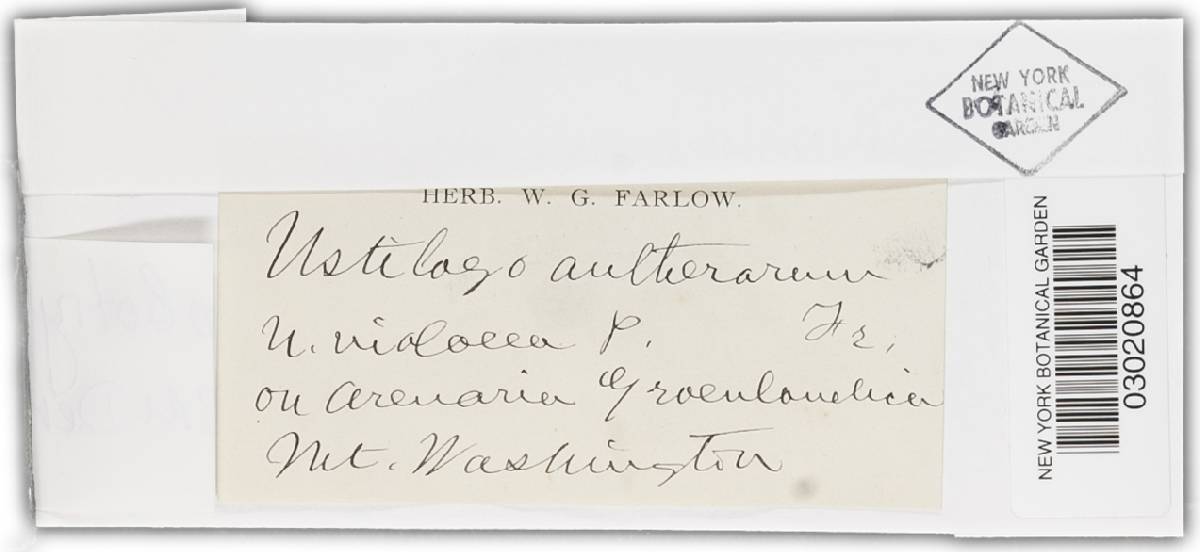 NEW YORK
BOTANICAL
GARDEN
HERB. W. G. FARLOW.
Ustilago antherarum
U. violacea P. Fr.
on Arenaria Groenlandica
Mt. Washington
NEW YORK BOTANICAL GARDEN
03020864